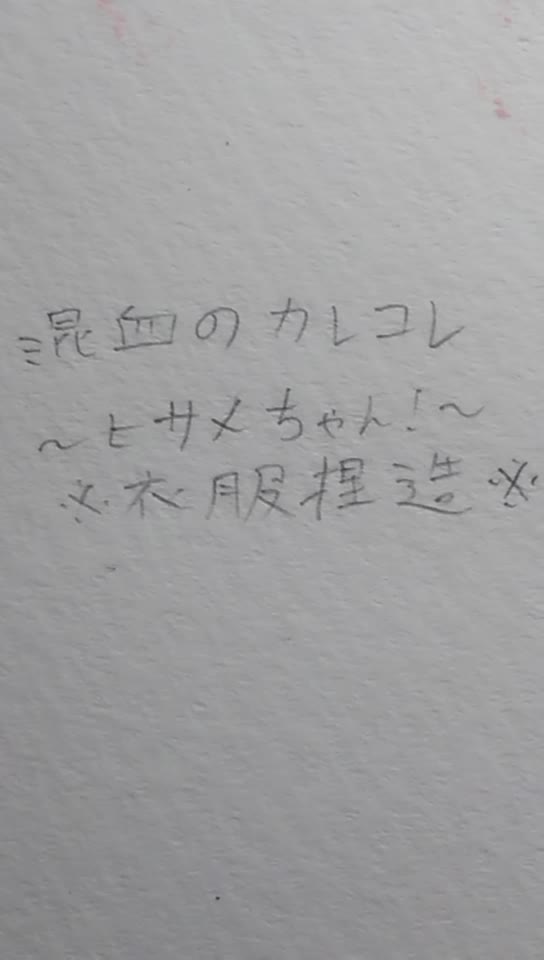 混血のカレコレ
~ヒサメちゃん!~
※衣服捏造※